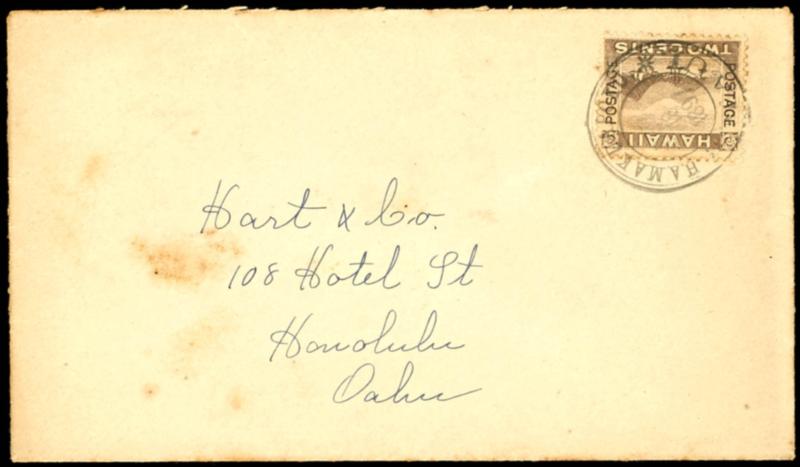 TWO CENTS
POSTAGE
POSTAGE
HAWAII
HAMAKUA
Hart & Co.
108 Hotel St
Honolulu
Oahu